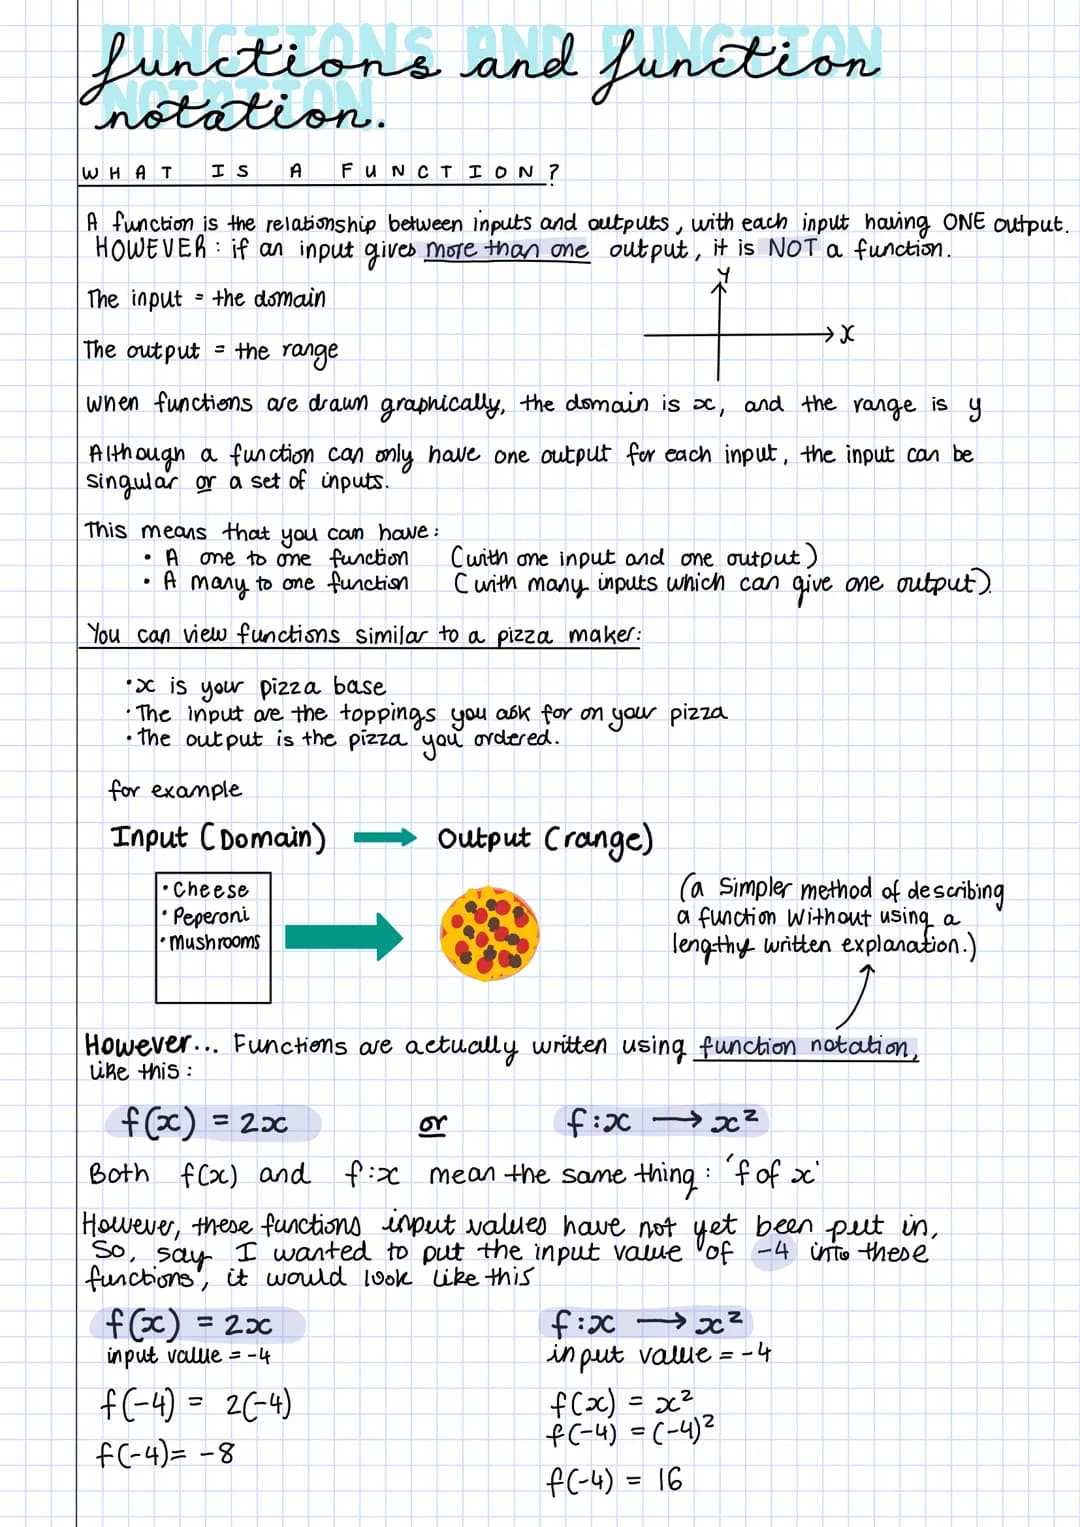 FUNCTIONS AND FUNCTION
NOTATION.
functions and function
notation.
WHAT IS A FUNCTION?
A function is the relationship between inputs and outputs, with each input having ONE output.
HOWEVER : if an input gives more than one output, it is NOT a function.
y
The input = the domain
x
The output = the range
When functions are drawn graphically, the domain is x, and the range is y
Although a function can only have one output for each input, the input can be
singular or a set of inputs.
This means that you can have :
• A one to one function (with one input and one output)
• A many to one function (with many inputs which can give one output).
You can view functions similar to a pizza maker:
• x is your pizza base
• The input are the toppings you ask for on your pizza
• The output is the pizza you ordered.
for example
Input (Domain) → Output (range)
• Cheese
• Peperoni
• Mushrooms
(a simpler method of describing
a function without using a
lengthy written explanation.)
However... Functions are actually written using function notation,
like this :
f(x) = 2x or f:x → x²
Both f(x) and f:x mean the same thing : 'f of x'
However, these functions input values have not yet been put in,
So, say I wanted to put the input value of -4 into these
functions, it would look like this
f(x) = 2x
input value = -4
f(-4) = 2(-4)
f(-4)= -8
f:x → x²
input value = -4
f(x) = x²
f(-4) = (-4)²
f(-4) = 16